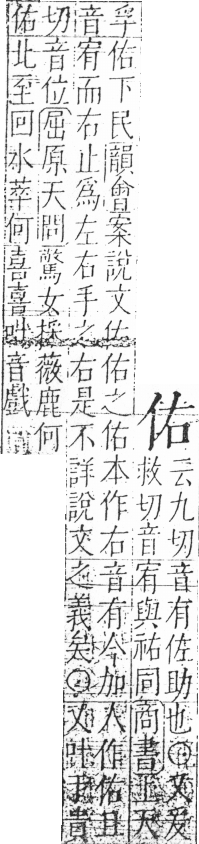 佑
云九切音有佐助也◎又爰
救切音宥與祐同商書並天
孚佑下民韻會案說文佐佑之佑本作右音有今加人作佑且
音宥而右止為左右手之右是不詳說文之義矣◎又叶于貴
切音位屈原天問驚女採薇鹿何
佑北至回水萃何喜喜叶音戲